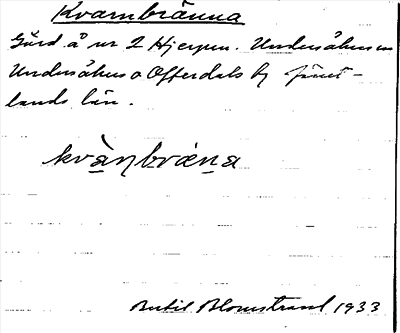 Kvarnbränna
Gård å nr 2 Hjerpen. Undersåkers sn
Undersåkers o Offerdals tg Jämt-
lands län.
kvà̱ηbrǽṉa
Bertil Blomstrand 1933